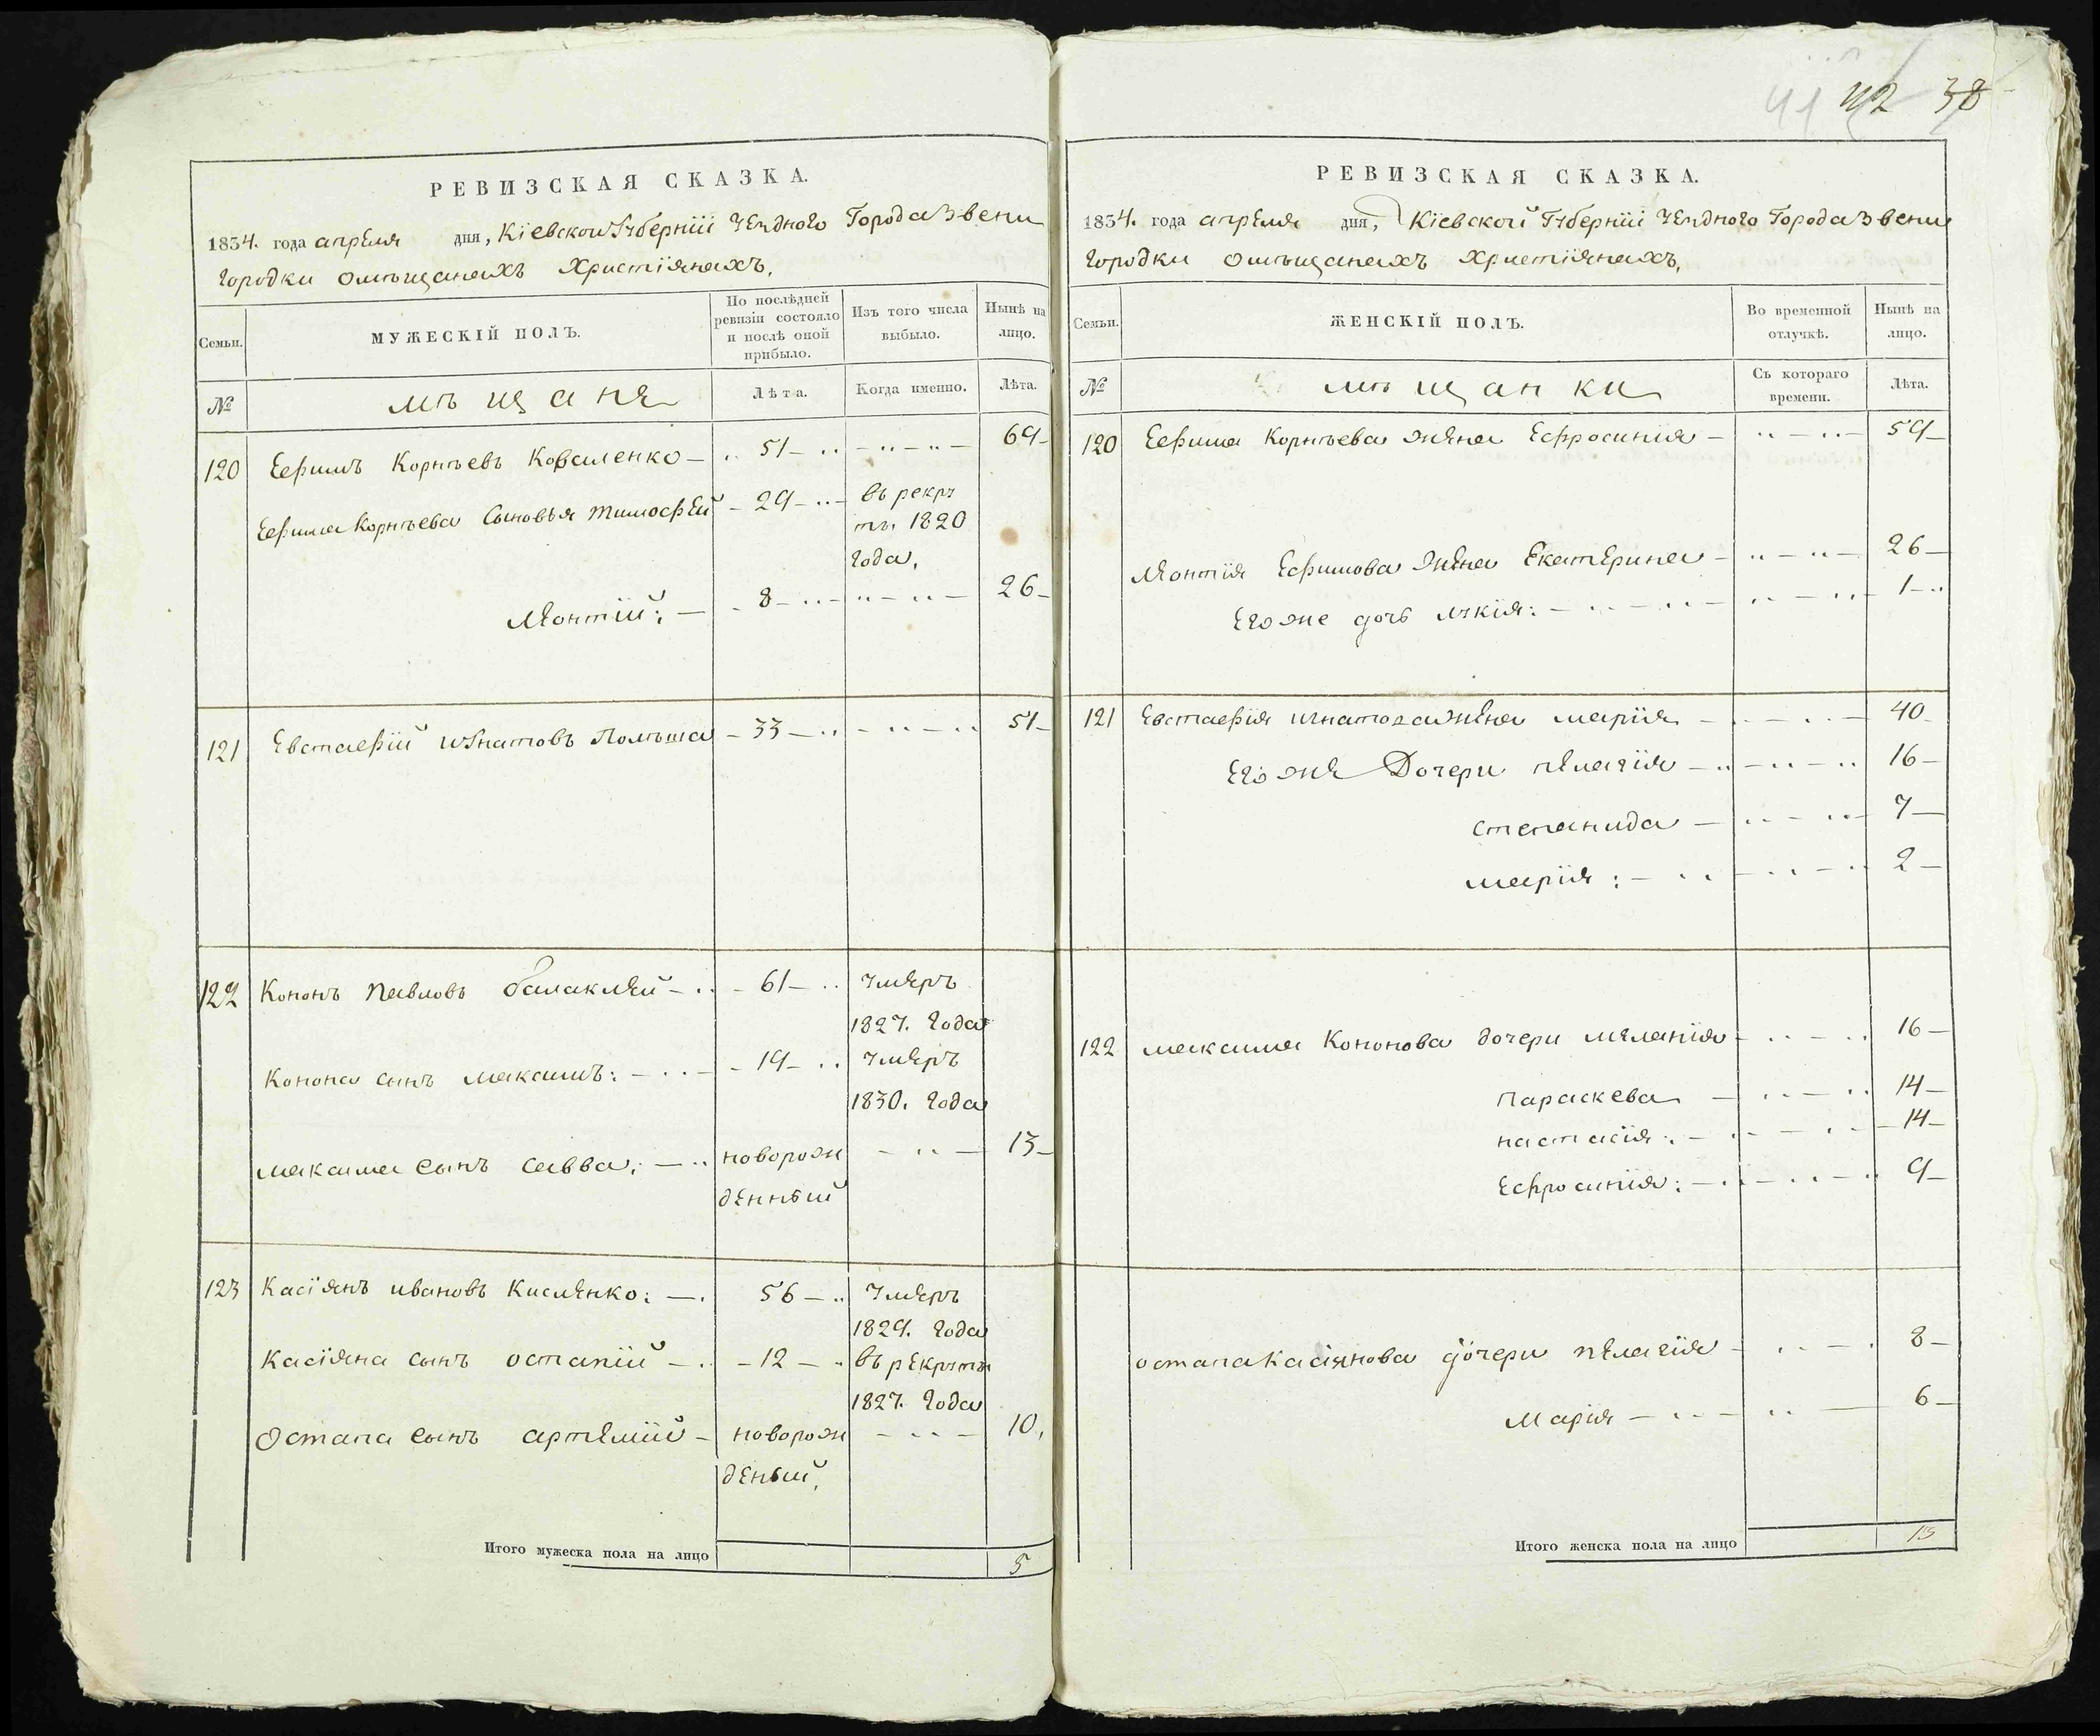 41 42 38
РЕВИЗСКАЯ СКАЗКА.
1834. года апреля дня, Кіевской Губерніи Уезднаго Города Звени
городки о мѣщанахъ христіянахъ,
Семьи. МУЖЕСКІЙ ПОЛЪ. По послѣдней ревизіи состояло и послѣ оной прибыло. Изъ того числа выбыло. Нынѣ на лицо.
№ мѣщане Лѣта. Когда именно. Лѣта.
120 Ефимъ Корнѣевъ Коваленко 51 69
Ефима Корнѣева сыновья тимофей 29 въ рекру
ты 1820
года,
Леонтій: 8 26
121 Евстафій игнатовъ Помѣша 33 51
122 Кононъ павловъ балаклей 61 умеръ
1827. года
Конона сынъ максимъ: 19 умеръ
1830. года
максима сынъ савва: новорож 13
денный
123 Касіянъ ивановъ Кисленко: 56 умеръ
1829. года
Касіяна сынъ остапій 12 въ рекруты
1827. года
Остапа сынъ артемій новорож 10,
деный,
Итого мужеска пола на лицо 5
РЕВИЗСКАЯ СКАЗКА.
1834. года апреля дня, Кіевской Губерніи Уезднаго Города Звени
городки о мѣщанахъ христіянахъ,
Семьи. ЖЕНСКІЙ ПОЛЪ. Во временной отлучкѣ. Нынѣ на лицо.
№ мѣщанки Съ котораго времени. Лѣта.
120 Ефима Корнѣева жена Ефросинія 59
Леонтія Ефимова жена Екатерина 26
Его же дочь лукія: 1
121 Евстафія игнатова жена марія 40
Его же Дочери пелагія 16
степанида 7
марія: 2
122 максима Кононова дочери меланія 16
параскева 14
настасія: 14
Ефросинія: 9
остапа Касіянова дочери пелагія 8
Марія 6
Итого женска пола на лицо 13